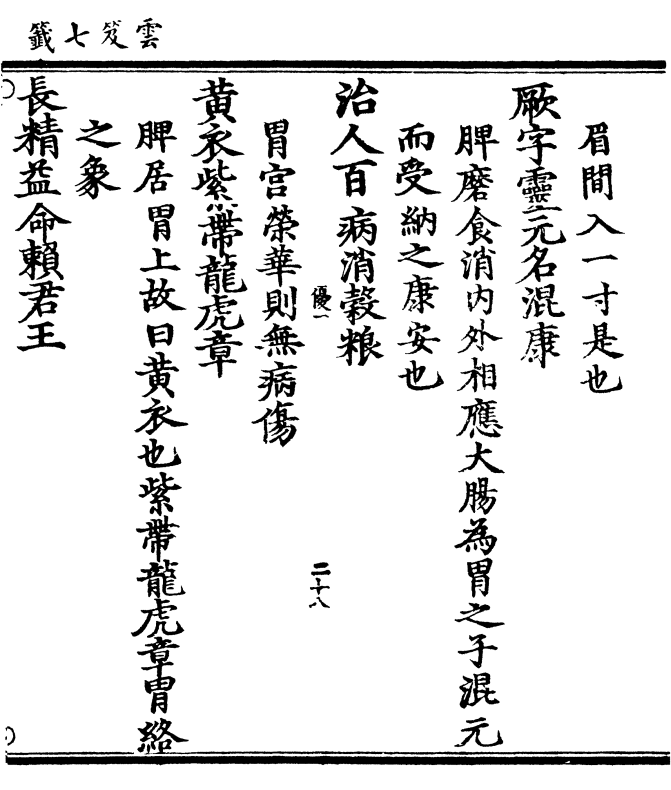 雲笈七籤
眉間入一寸是也
厥字靈元名混康
脾磨食消內外相應大腸為胃之子混元
而受納之康安也
治人百病消穀粮
優一
二十八
胃宫榮華則無病傷
黄衣紫帶龍虎章
脾居胃上故曰黄衣也紫帶龍虎章胃絡
之象
長精益命賴君王